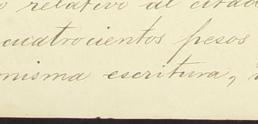 o relativo al citad
cuatrocientos pesos
misma escritura,